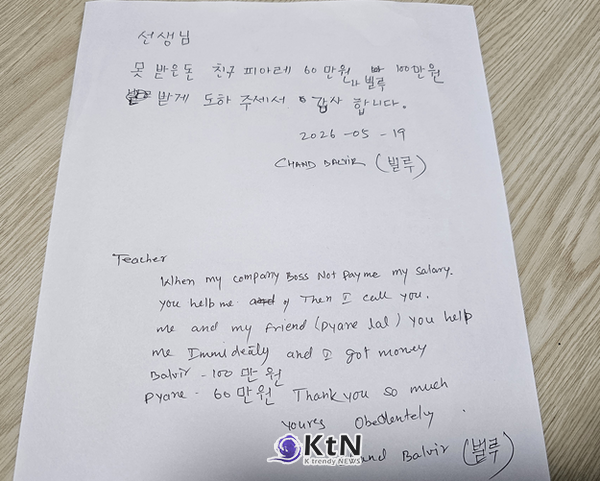 선생님
못 받은돈 친구 피아레 60만원 와 빌루 100만원
받게 도하 주세서 감사 합니다.
2026-05-19
CHAND BALVIR (빌루)
Teacher
When my company Boss Not pay me my salary.
you help me Then I call you.
me and my friend (pyare lal) you help
me Immidealy and I got money
Balvir - 100만원
Pyare - 60만원 Thank you so much
yours Obedentely
Balvir (빌루)
KtN
K trendy NEWS